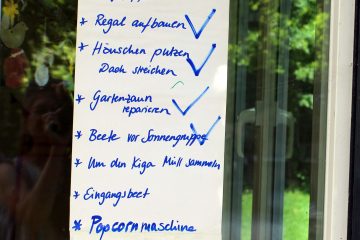 * Regal aufbauen ✓
* Häuschen putzen ✓
Dach streichen
* Gartenzaun ✓
reparieren
* Beete vor Sonnengruppe ✓
* Um den Kiga Müll sammeln
* Eingangsbeet
* Popcornmaschine